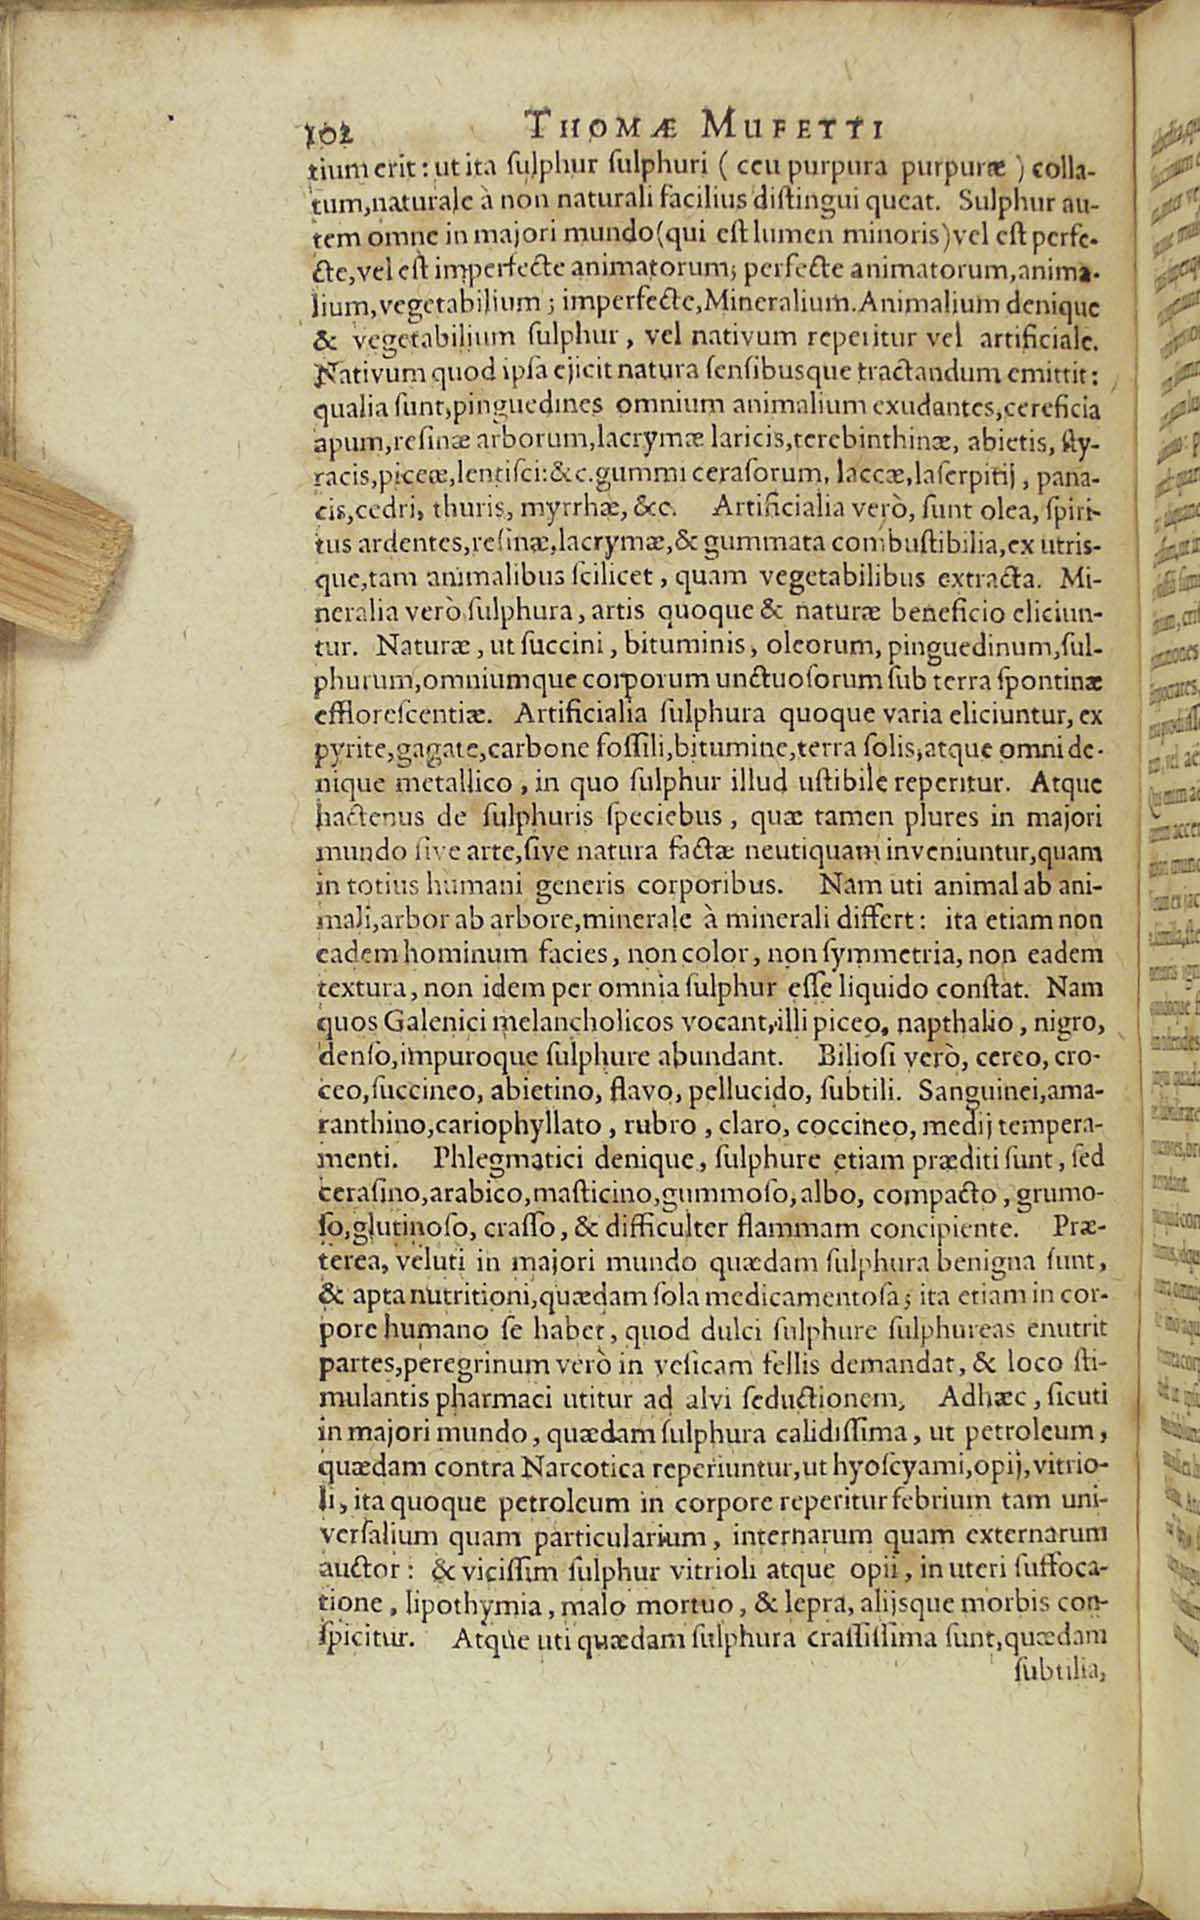 102 THOMÆ MUFETTI
tium erit: ut ita ſulphur ſulphuri (ceu purpura purpuræ) colla-
tum, naturale à non naturali facilius diſtingui queat. Sulphur au-
tem omne in majori mundo (qui eſt lumen minoris) vel eſt perfe-
cte, vel eſt imperfecte animatorum; perfecte animatorum, anima-
lium, vegetabilium; imperfecte, Mineralium. Animalium denique
& vegetabilium ſulphur, vel nativum reperitur vel artificiale.
Nativum quod ipſa ejicit natura ſenſibusque tractandum emittit:
qualia ſunt, pinguedines omnium animalium exudantes, cereficia
apum, reſinæ arborum, lacrymæ laricis, terebinthinæ, abietis, ſty-
racis, piceæ, lentiſci: &c. gummi ceraſorum, laccæ, laſerpitij, pana-
cis, cedri, thuris, myrrhæ, &c. Artificialia verò, ſunt olea, ſpiri-
tus ardentes, reſinæ, lacrymæ, & gummata combuſtibilia, ex utris-
que, tam animalibus ſcilicet, quam vegetabilibus extracta. Mi-
neralia verò ſulphura, artis quoque & naturæ beneficio eliciun-
tur. Naturæ, ut ſuccini, bituminis, oleorum, pinguedinum, ſul-
phurum, omniumque corporum unctuoſorum ſub terra ſpontinæ
effloreſcentiæ. Artificialia ſulphura quoque varia eliciuntur, ex
pyrite, gagate, carbone foſſili, bitumine, terra ſolis, atque omni de-
nique metallico, in quo ſulphur illud uſtibile reperitur. Atque
hactenus de ſulphuris ſpeciebus, quæ tamen plures in majori
mundo ſive arte, ſive natura factæ neutiquam inveniuntur, quam
in totius humani generis corporibus. Nam uti animal ab ani-
mali, arbor ab arbore, minerale à minerali differt: ita etiam non
eadem hominum facies, non color, non ſymmetria, non eadem
textura, non idem per omnia ſulphur eſſe liquido conſtat. Nam
quos Galenici melancholicos vocant, illi piceo, napthalio, nigro,
denſo, impuroque ſulphure abundant. Bilioſi verò, cereo, cro-
ceo, ſuccineo, abietino, flavo, pellucido, ſubtili. Sanguinei, ama-
ranthino, cariophyllato, rubro, claro, coccineo, medij tempera-
menti. Phlegmatici denique, ſulphure etiam præditi ſunt, ſed
ceraſino, arabico, maſticino, gummoſo, albo, compacto, grumo-
ſo, glutinoſo, craſſo, & difficulter flammam concipiente. Præ-
terea, veluti in majori mundo quædam ſulphura benigna ſunt,
& apta nutritioni, quædam ſola medicamentoſa; ita etiam in cor-
pore humano ſe habet, quod dulci ſulphure ſulphureas enutrit
partes, peregrinum verò in veſicam fellis demandat, & loco ſti-
mulantis pharmaci utitur ad alvi ſeductionem. Adhæc, ſicuti
in majori mundo, quædam ſulphura calidiſſima, ut petroleum,
quædam contra Narcotica reperiuntur, ut hyoſcyami, opij, vitrio-
li, ita quoque petroleum in corpore reperitur febrium tam uni-
verſalium quam particularium, internarum quam externarum
auctor: & viciſſim ſulphur vitrioli atque opii, in uteri ſuffoca-
tione, lipothymia, malo mortuo, & lepra, alijsque morbis con-
ſpicitur. Atque uti quædam ſulphura craſſiſſima ſunt, quædam
ſubtilia,